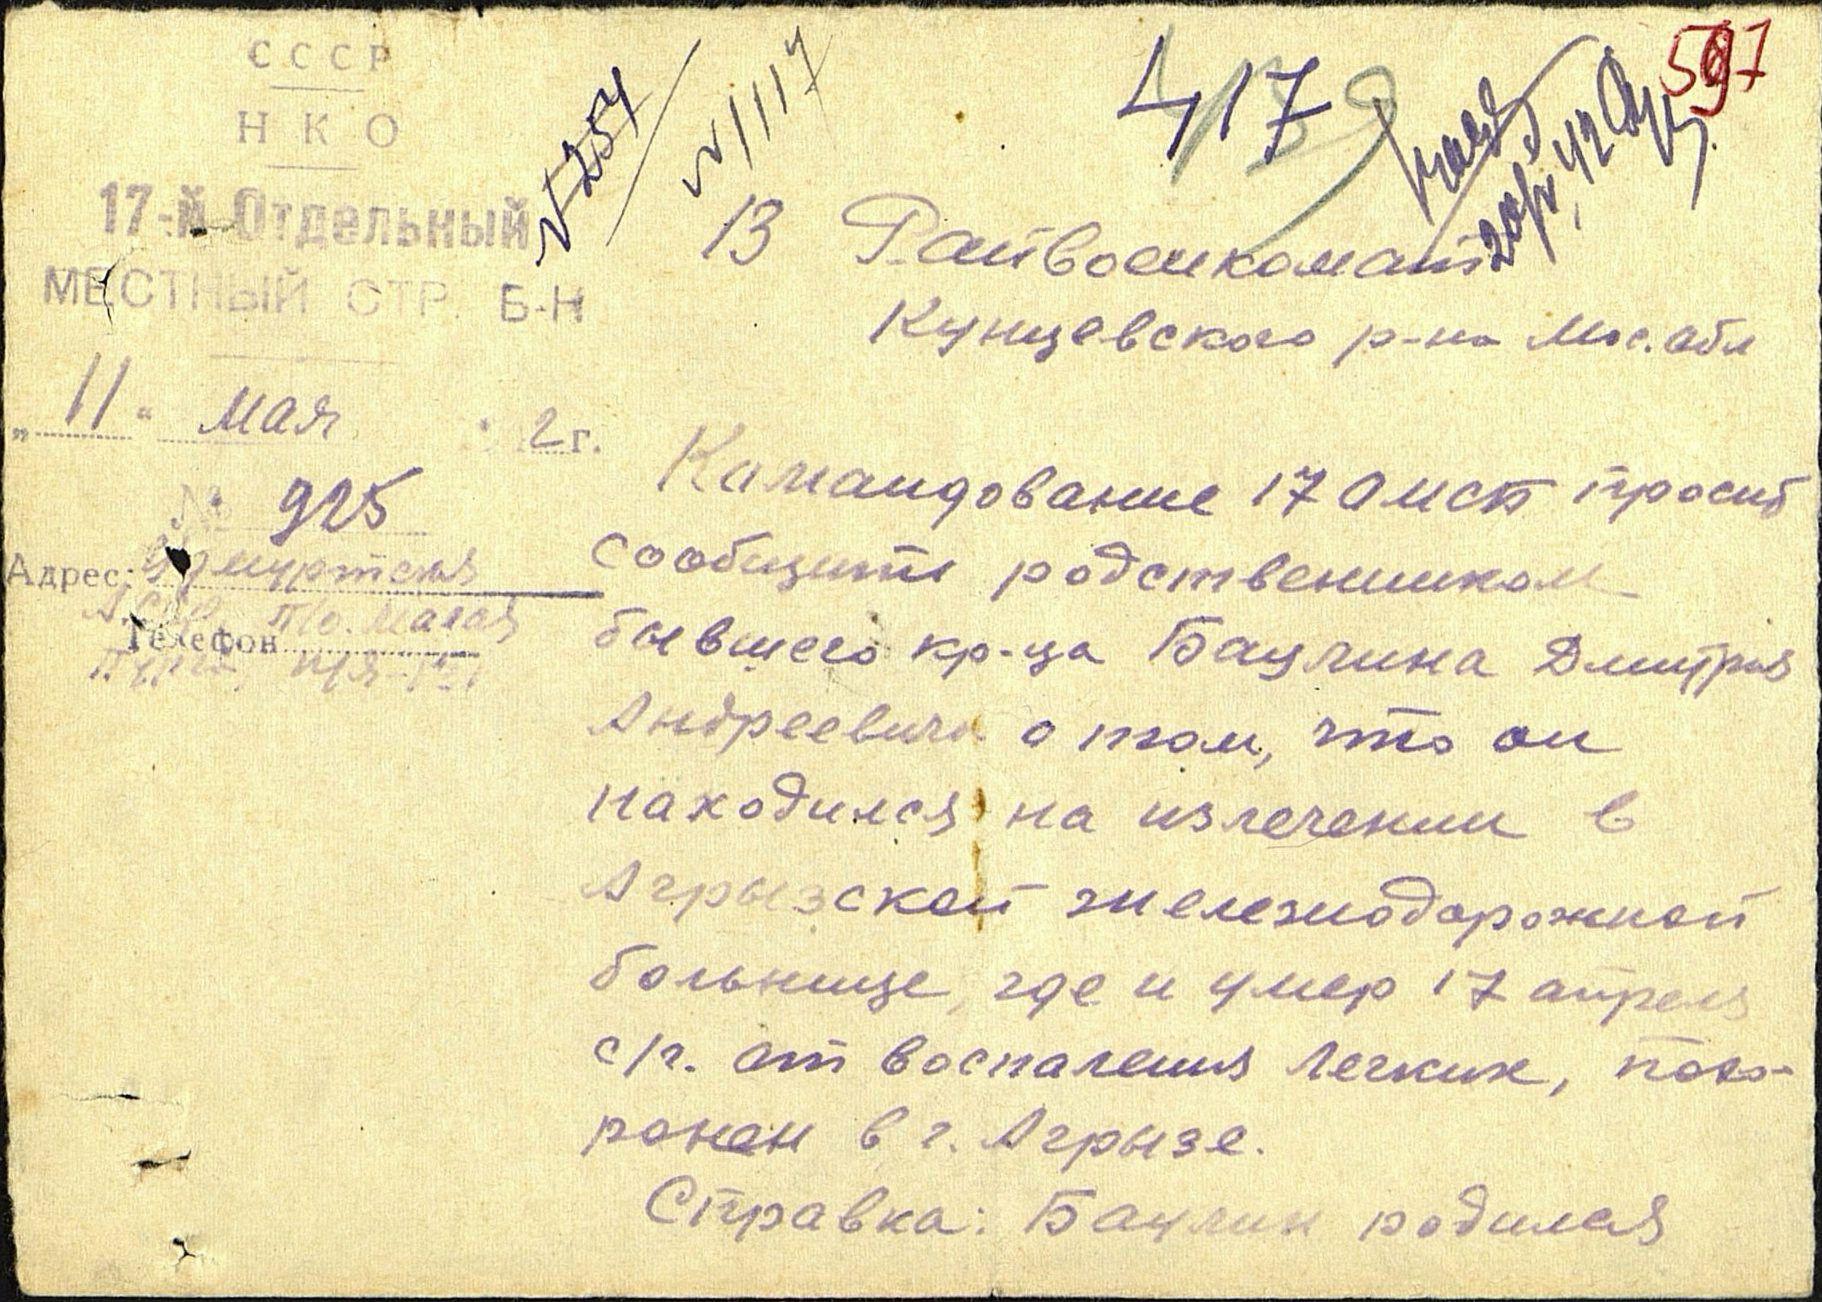 СССР
НКО
17-й Отдельный
МЕСТНЫЙ СТР. Б-Н
„11“ мая 2 г.
№ 925
Адрес: Удмуртская
АССР, п/о. Малая
Телефон
Пурга, п/я
№ 254
№ 1117
417
597
В Райвоенкомат
Кунцевского р-на Мос. обл
Командование 17 омсб просит
сообщить родственникам
бывшего кр-ца Баулина Дмитрия
Андреевича о том, что он
находился на излечении в
Агрызской железнодорожной
больнице, где и умер 17 апреля
с/г. от воспаления легких, похо-
ронен в г. Агрызе.
Справка: Баулин родился